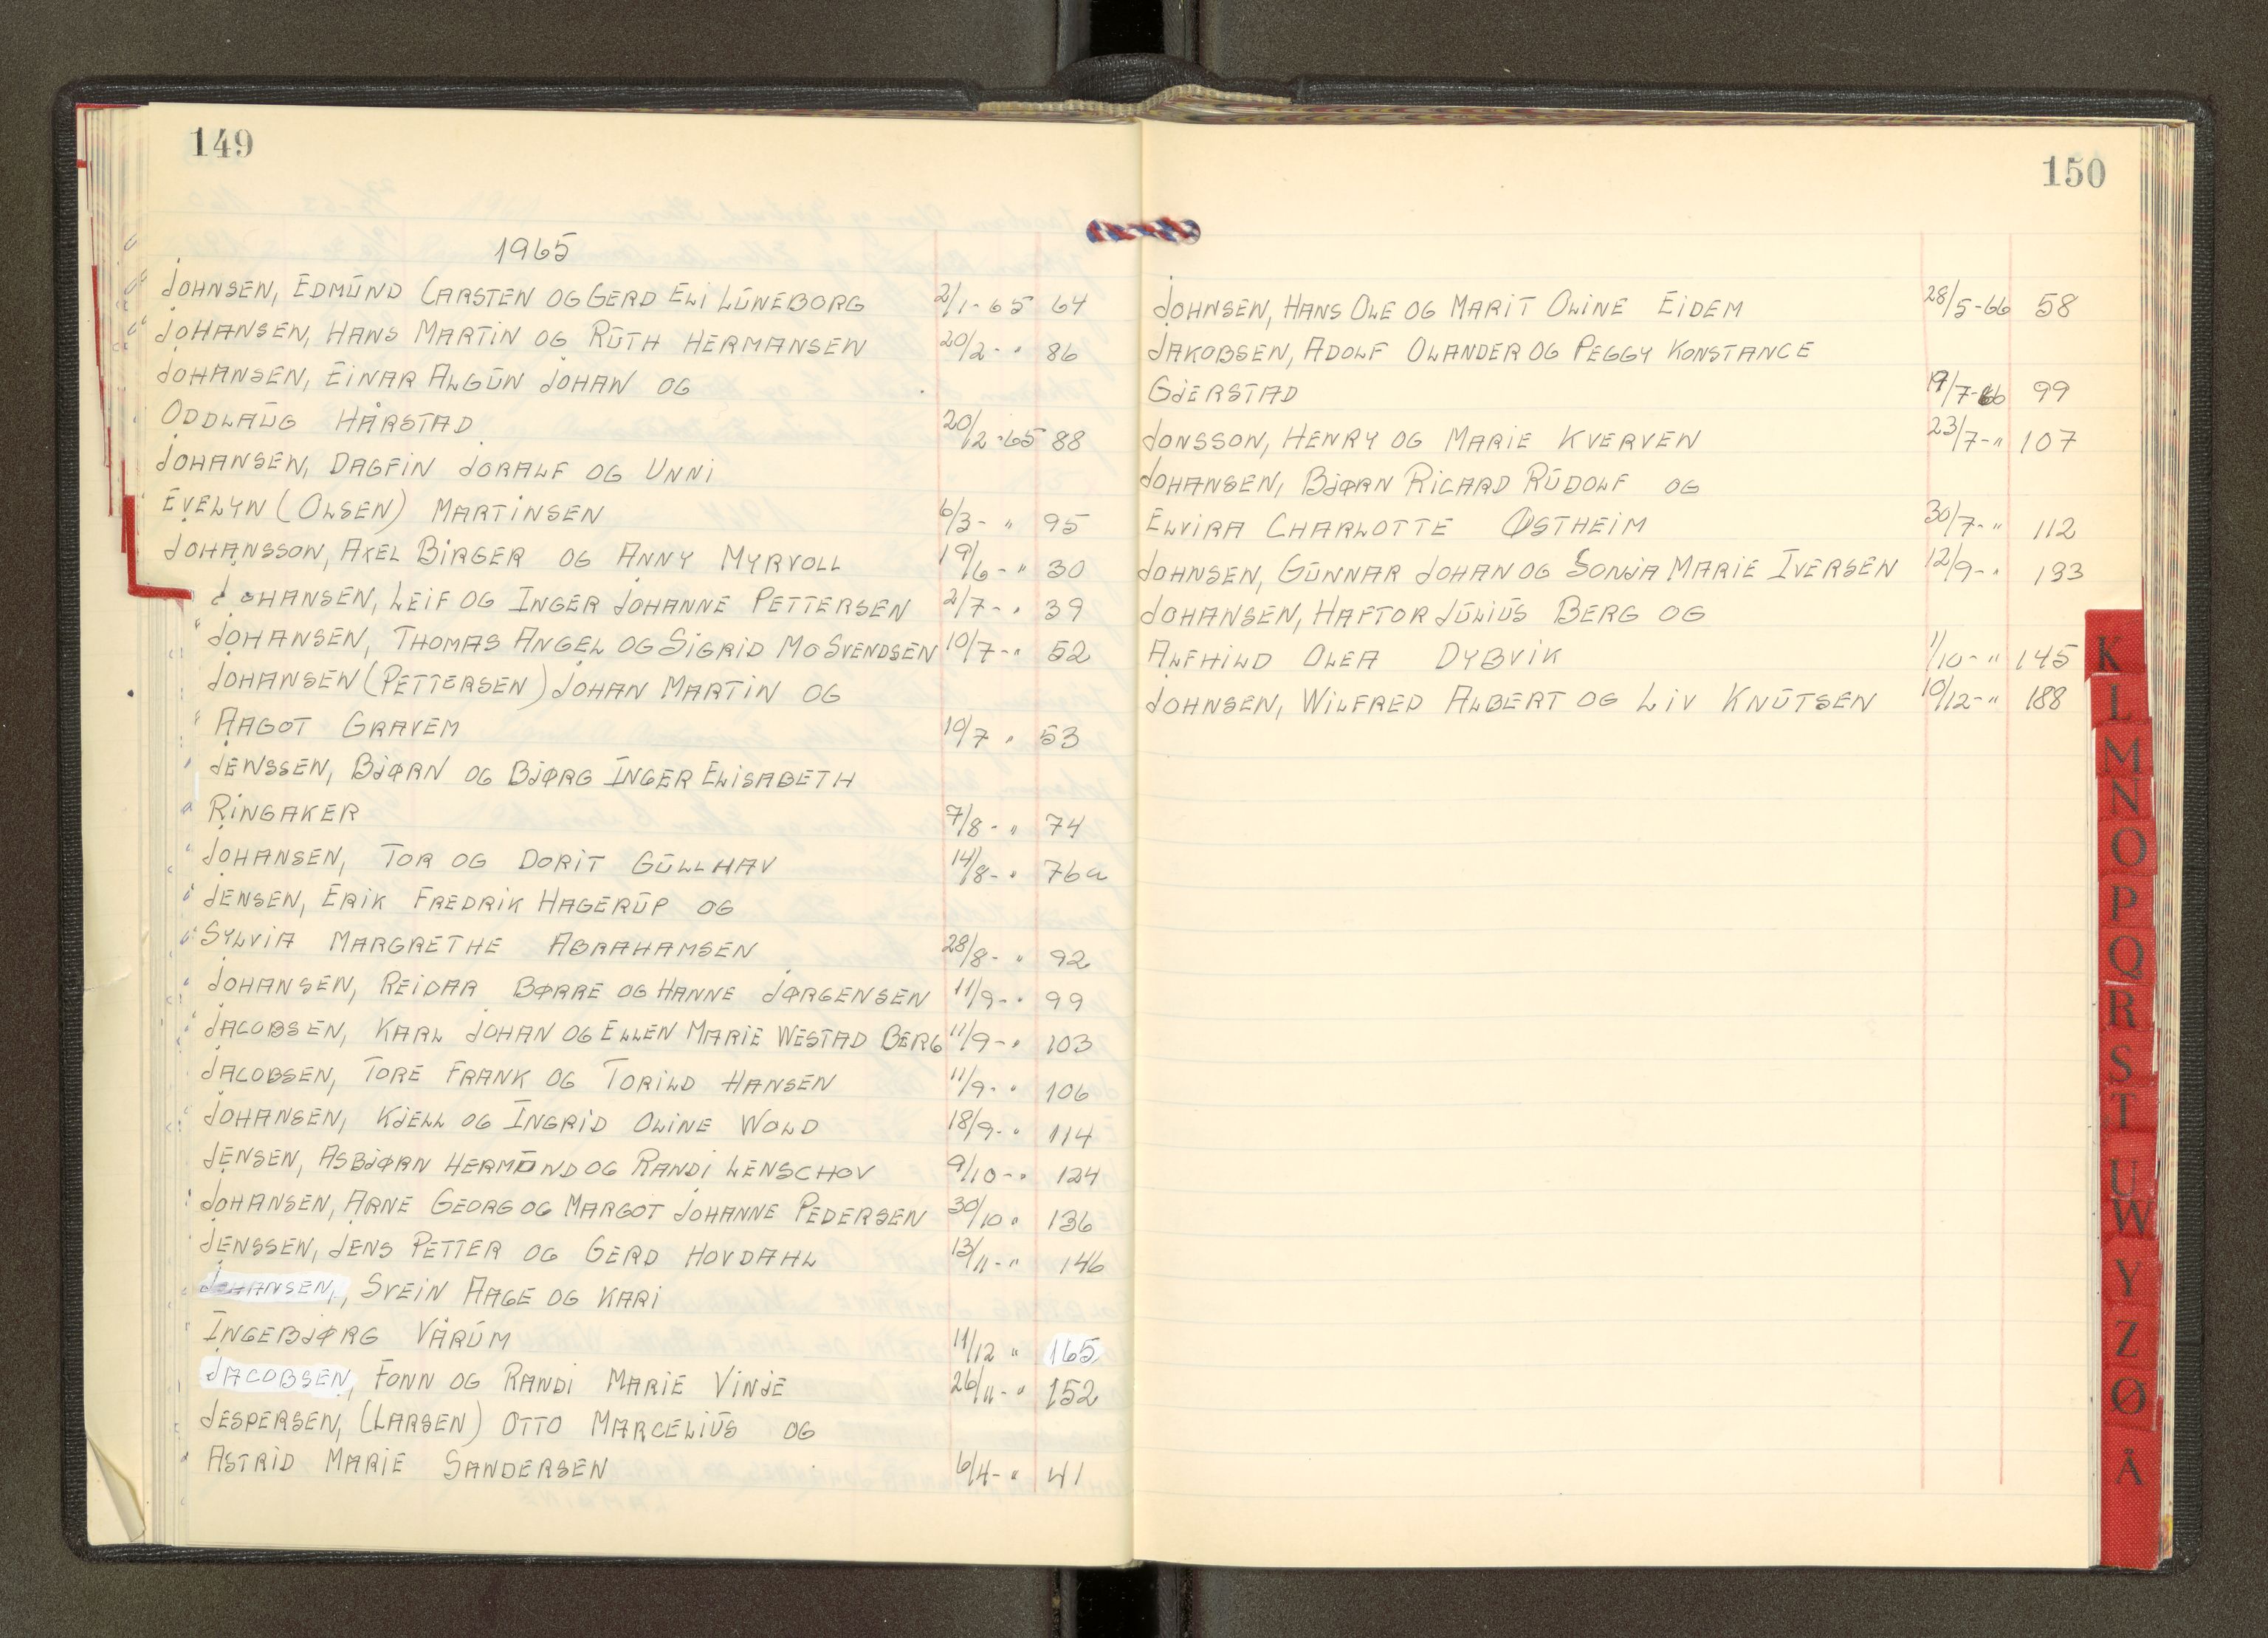 149
1965
JOHNSEN, EDMŪND CARSTEN OG GERD ELI LŪNEBORG 2/1-65 64
JOHANSEN, HANS MARTIN OG RŪTH HERMANSEN 20/2-" 86
JOHANSEN, EINAR ALGŪN JOHAN OG
ODDLAŪG HÅRSTAD 20/2-65 88
JOHANSEN, DAGFIN JORALF OG UNNI
EVELYN (OLSEN) MARTINSEN 6/3-" 95
JOHANSSON, AXEL BIRGER OG ANNY MYRVOLL 19/6-" 30
JOHANSEN, LEIF OG INGER JOHANNE PETTERSEN 2/7-" 39
JOHANSEN, THOMAS ANGEL OG SIGRID MO SVENDSEN 10/7-" 52
JOHANSEN (PETTERSEN) JOHAN MARTIN OG
AAGOT GRAVEM 10/7 " 53
JENSSEN, BJØRN OG BJØRG INGER ELISABETH
RINGAKER 7/8-" 74
JOHANSEN, TOR OG DORIT GŪLLHAV 14/8-" 76a
JENSEN, ERIK FREDRIK HAGERŪP OG
SYLVIA MARGRETHE ABRAHAMSEN 28/8-" 92
JOHANSEN, REIDAR BØRRE OG HANNE JØRGENSEN 11/9-" 99
JACOBSEN, KARL JOHAN OG ELLEN MARIE WESTAD BERG 11/9-" 103
JACOBSEN, TORE FRANK OG TORILD HANSEN 11/9-" 106
JOHANSEN, KJELL OG INGRID OLINE WOLD 18/9-" 114
JENSEN, ASBJØRN HERMŪND OG RANDI LENSCHOV 9/10-" 124
JOHANSEN, ARNE GEORG OG MARGOT JOHANNE PEDERSEN 30/10 " 136
JENSSEN, JENS PETTER OG GERD HOVDAHL 13/11-" 146
JOHANSEN, SVEIN AAGE OG KARI
INGEBJØRG VÅRŪM 11/12 " 165
JACOBSEN, FONN OG RANDI MARIE VINJE 26/11-" 152
JESPERSEN, (LARSEN) OTTO MARCELIŪS OG
ASTRID MARIE SANDERSEN 6/4-" 41
150
JOHNSEN, HANS OLE OG MARIT OLINE EIDEM 28/5-66 58
JAKOBSEN, ADOLF OLANDER OG PEGGY KONSTANCE
GJERSTAD 19/7-66 99
JONSSON, HENRY OG MARIE KVERVEN 23/7-" 107
JOHANSEN, BJØRN RICARD RŪDOLF OG
ELVIRA CHARLOTTE ØSTHEIM 30/7-" 112
JOHNSEN, GŪNNAR JOHAN OG SONJA MARIE IVERSEN 12/9-" 133
JOHANSEN, HAFTOR JŪLIŪS BERG OG
ALFHILD OLEA DYBVIK 1/10-" 145
JOHNSEN, WILFRED ALBERT OG LIV KNŪTSEN 10/12-" 188
K
L
M
N
O
P
Q
R
S
T
U
W
Y
Z
Ø
Å